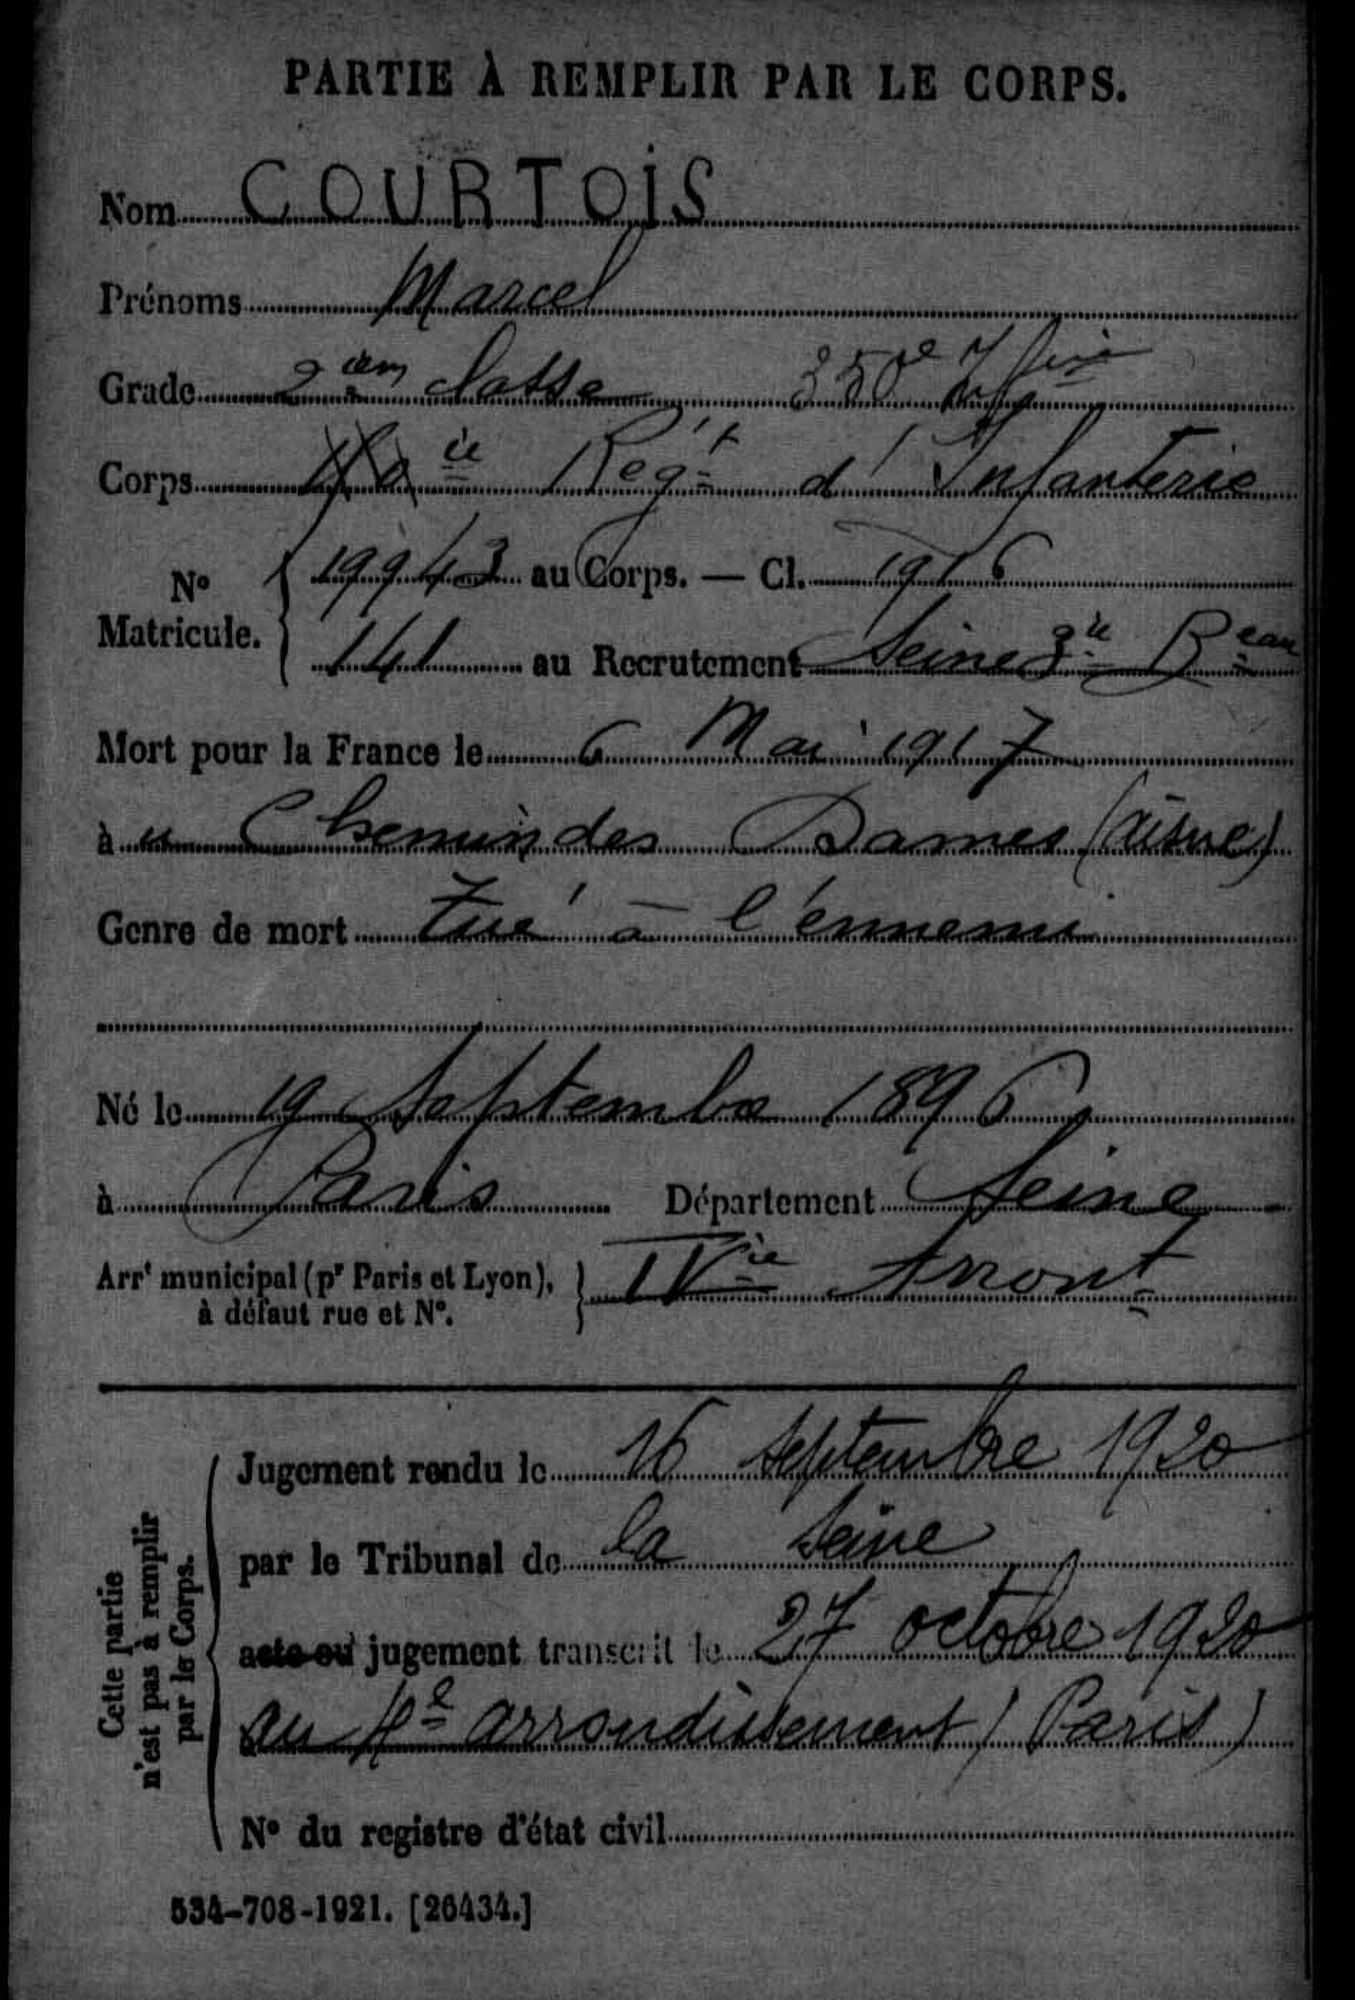 PARTIE À REMPLIR PAR LE CORPS.
Nom COURTOIS
Prénoms Marcel
Grade 2 ièm classe 350e
Corps ie Regt d'Infanterie
N° Matricule. { 19943 au Corps. — Cl. 1916
141 au Recrutement Seine 3ie Beau
Mort pour la France le 6 Mai 1917
à u Chemin des Dames (Aisne)
Genre de mort Tué à l'ennemi
Né le 19 Septembre 1896
à Paris Département Seine
Arrt municipal (pr Paris et Lyon), à défaut rue et N°. } IVie Arront
Cette partie n'est pas à remplir par le Corps.
Jugement rendu le 16 septembre 1920
par le Tribunal de la Seine
acte ou jugement transcrit le 27 octobre 1920
au 4e arrondissement (Paris)
N° du registre d'état civil
534-708-1921. [26434.]